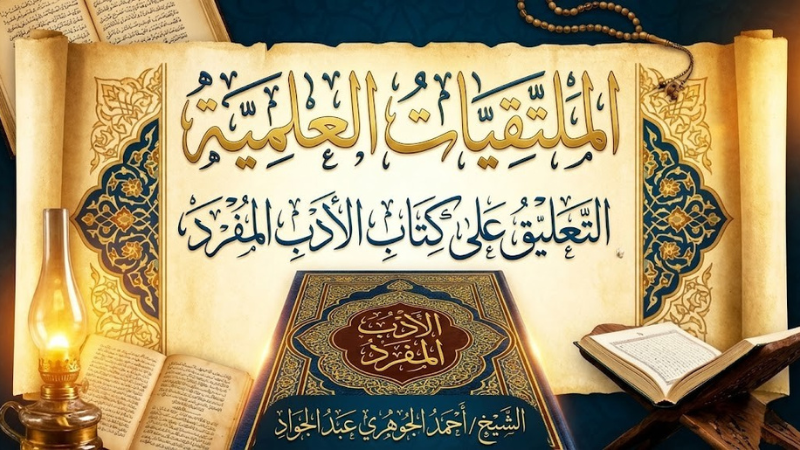 الملتقيات العلمية
التعليق على كتاب الأدب المفرد
الأدب
المفرد
الشيخ/ أحمد الجوهري عبد الجواد